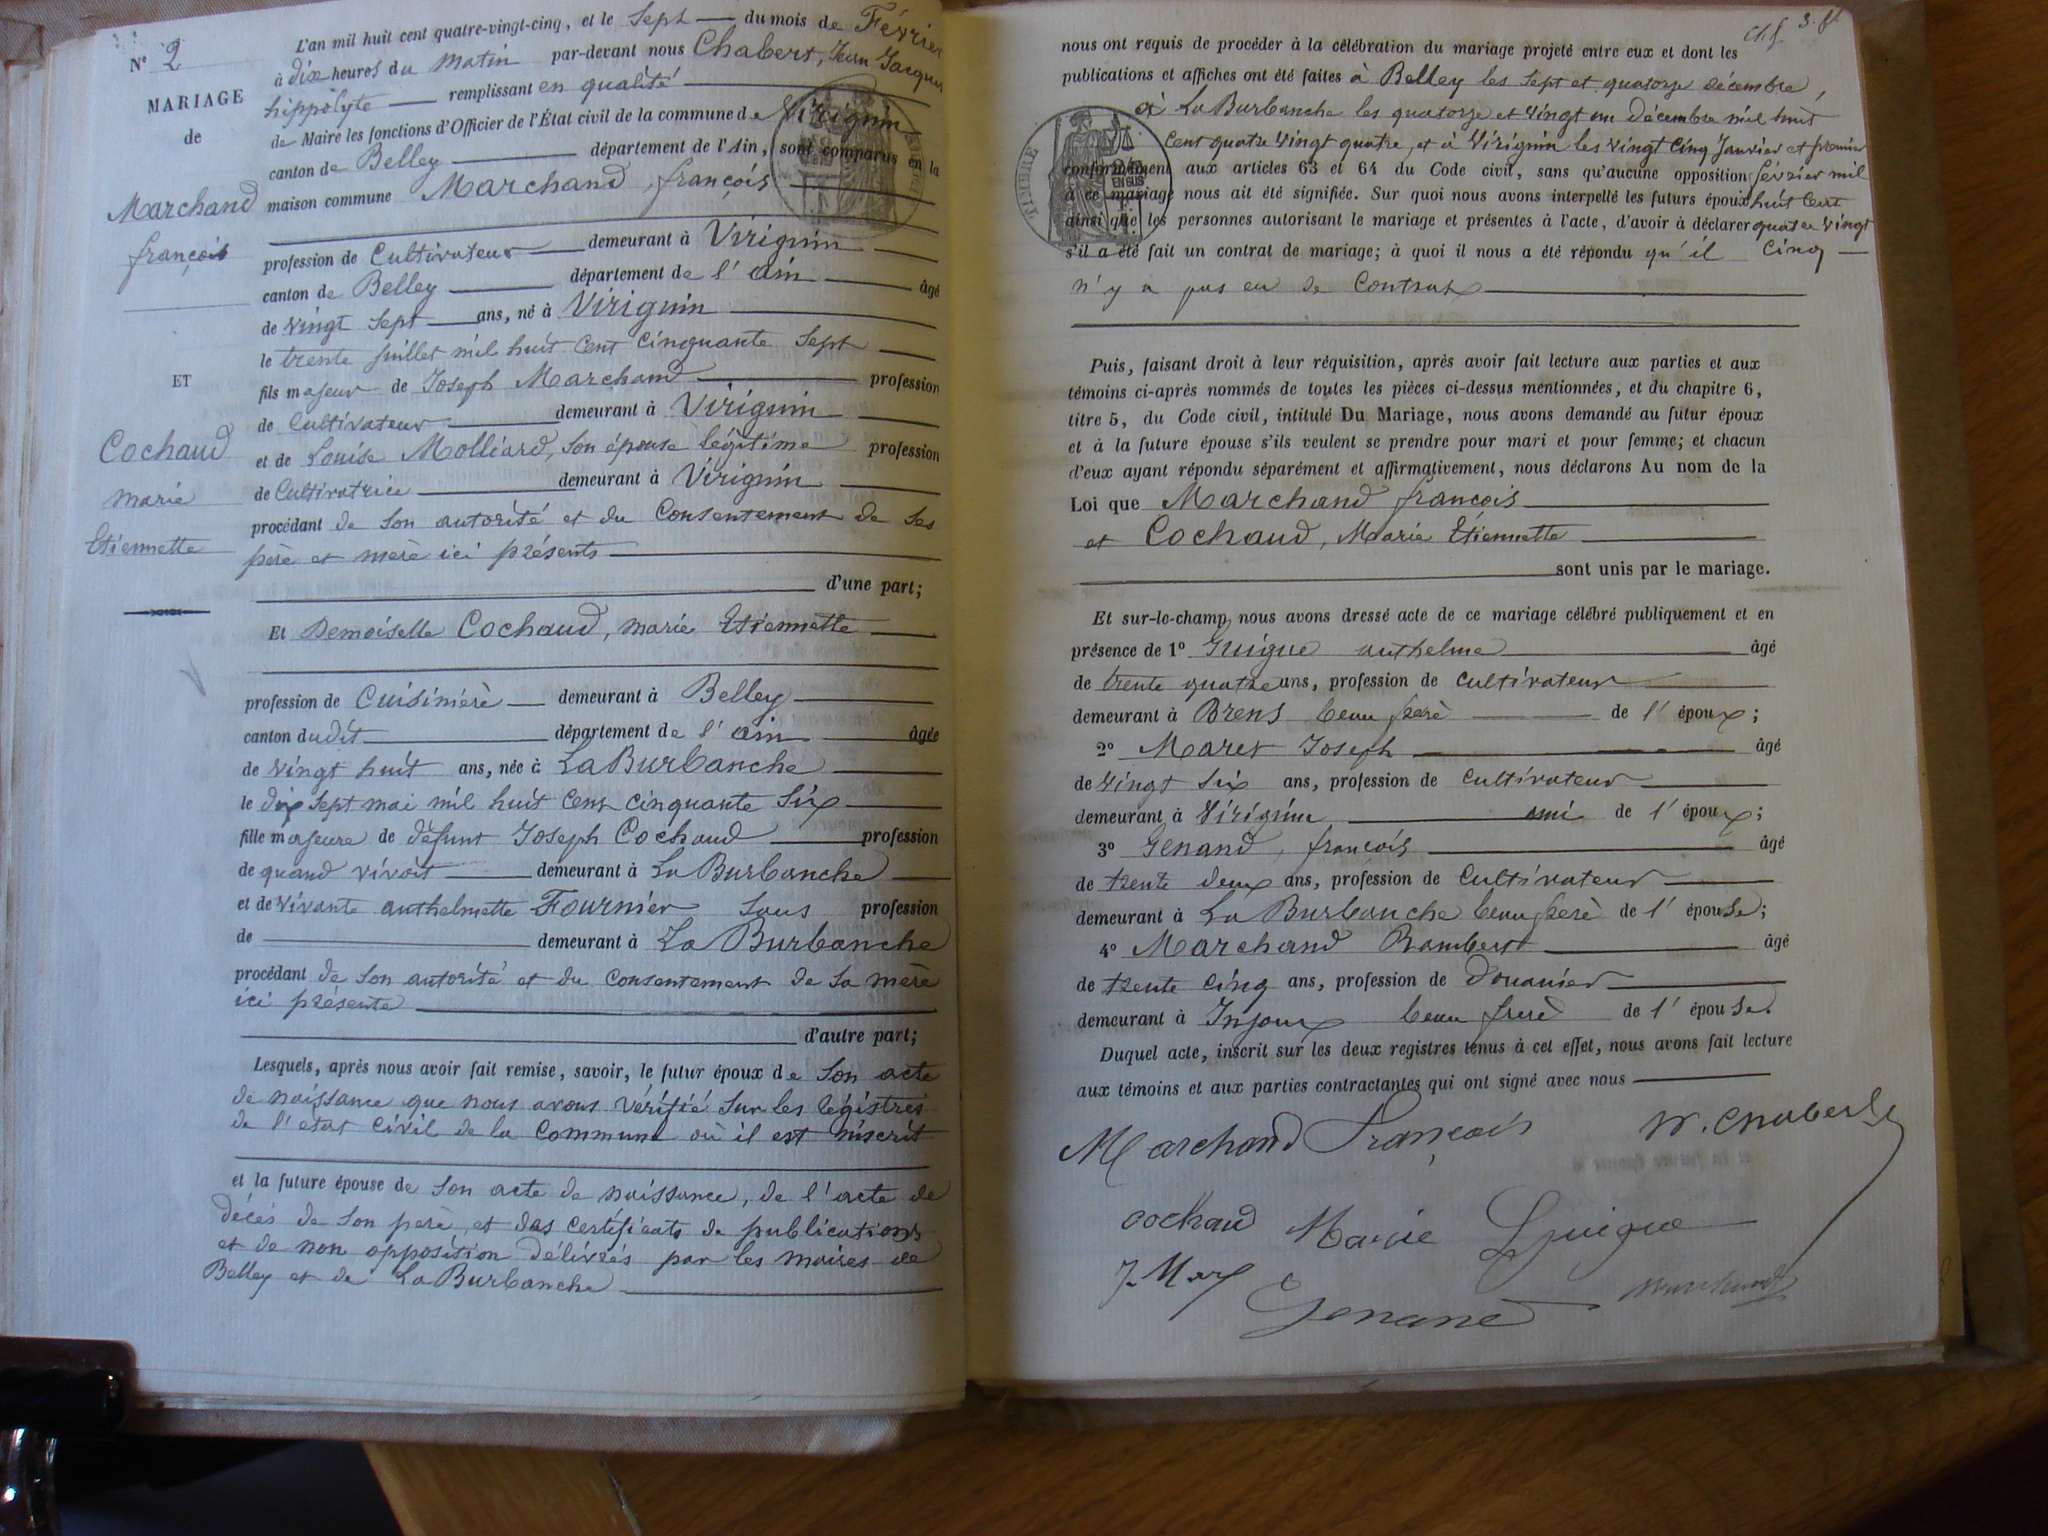 N° 2
MARIAGE
de
Marchand
françois
ET
Cochaud
marie
Etiennette
L'an mil huit cent quatre-vingt-cinq, et le Sept du mois de Février
à dix heures du matin par-devant nous Chabert, Jean Jacques
hippolyte remplissant en qualité
de Maire les fonctions d'Officier de l'État civil de la commune de Virignin
canton de Belley département de l'Ain, sont comparus en la
maison commune Marchand, françois
profession de Cultivateur demeurant à Virignin
canton de Belley département de l'ain âgé
de vingt sept ans, né à Virignin
le trente juillet mil huit cent cinquante sept
fils majeur de Joseph Marchand profession
de Cultivateur demeurant à Virignin
et de Louise Molliard, son épouse légitime profession
de Cultivatrice demeurant à Virignin
procédant de son autorité et du Consentement de ses
pere et mere ici présents
d'une part;
Et Demoiselle Cochaud, marie Etiennette
profession de Cuisinière demeurant à Belley
canton dudit département de l'ain âgée
de vingt huit ans, née à La Burbanche
le dix sept mai mil huit cent cinquante six
fille majeure de défunt Joseph Cochaud profession
de quand vivait demeurant à La Burbanche
et de vivante anthelmette Fournier sans profession
de demeurant à La Burbanche
procédant de son autorité et du consentement de sa mère
ici présente
d'autre part;
Lesquels, après nous avoir fait remise, savoir, le futur époux de son acte
de naissance que nous avons vérifié sur les régistres
de l'etat civil de la commune où il est inscrit
et la future épouse de son acte de naissance, de l'acte de
décès de son père, et des certificats de publications
et de non opposition délivrés par les maires de
Belley et de La Burbanche
nous ont requis de procéder à la célébration du mariage projeté entre eux et dont les
publications et affiches ont été faites à Belley les sept et quatorze décembre,
à La Burbanche les quatorze et vingt un décembre mil huit
cent quatre vingt quatre, et à Virignin les vingt cinq Janvier et premier
conformément aux articles 63 et 64 du Code civil, sans qu'aucune opposition février mil
à ce mariage nous ait été signifiée. Sur quoi nous avons interpellé les futurs époux huit cent
ainsi que les personnes autorisant le mariage et présentes à l'acte, d'avoir à déclarer quatre vingt
s'il a été fait un contrat de mariage; à quoi il nous a été répondu qu'il cinq
n'y a pas eu de Contrat
TIMBRE
Puis, faisant droit à leur réquisition, après avoir fait lecture aux parties et aux
témoins ci-après nommés de toutes les pièces ci-dessus mentionnées, et du chapitre 6,
titre 5, du Code civil, intitulé Du Mariage, nous avons demandé au futur époux
et à la future épouse s'ils veulent se prendre pour mari et pour femme; et chacun
d'eux ayant répondu séparément et affirmativement, nous déclarons Au nom de la
Loi que Marchand françois
et Cochaud, Marie Etiennette
sont unis par le mariage.
Et sur-le-champ nous avons dressé acte de ce mariage célébré publiquement et en
présence de 1° Guigue anthelme âgé
de trente quatre ans, profession de cultivateur
demeurant à Brens beau frere de l'époux;
2° Maret Joseph âgé
de vingt six ans, profession de cultivateur
demeurant à Virignin ami de l'époux;
3° Genand, françois âgé
de trente deux ans, profession de Cultivateur
demeurant à La Burbanche beau frere de l'épouse;
4° Marchand Rambert âgé
de trente cinq ans, profession de douanier
demeurant à Injoux beau frere de l'épouse.
Duquel acte, inscrit sur les deux registres tenus à cet effet, nous avons fait lecture
aux témoins et aux parties contractantes qui ont signé avec nous
Marchand François Chabert
cochaud Marie Guigue
Genand Marchand